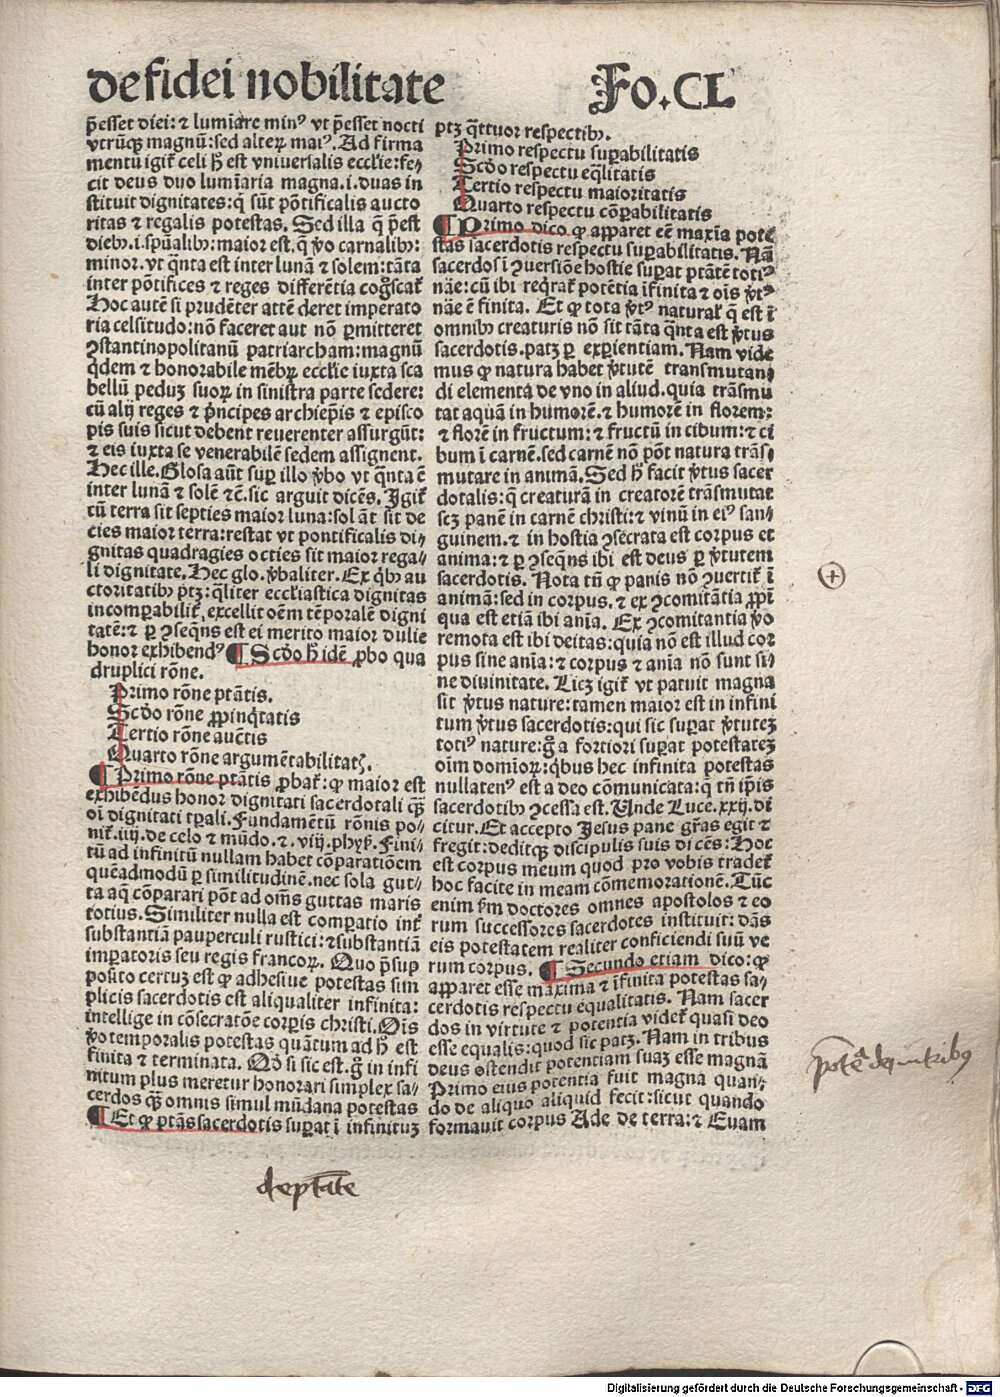 de fidei nobilitate Fo.CL
p̄esset diei: ⁊ lumīare minꝰ vt p̄esset nocti
vtrūqꝫ magnū: sed alteꝝ maiꝰ. Ad firma
mentū igit᷑ celi h̄ est vniuersalis ecclie: fe⸗
cit deus duo lumīaria magna.i.duas in
stituit dignitates: q̄ sūt pōtificalis aucto
ritas ⁊ regalis potestas. Sed illa q̄ p̄est
diebꝫ.i.spūalibꝫ: maior est. q̄ ꝟo carnalibꝫ:
minor. vt q̄nta est inter lunā ⁊ solem: tāta
inter pōtifices ⁊ reges differētia cogͦscat᷑
Hoc autē si prudēter attēderet imperato
ria celsitudo: nō faceret aut nō ꝑmitteret
ꝯstantinopolitanū patriarcham: magnū
qͥdem ⁊ honorabile mēbꝝ ecclie iuxta sca
bellū peduꝫ suoꝝ in sinistra parte sedere:
cū alij reges ⁊ pͥncipes archiep̄is ⁊ episco
pis suis sicut debent reuerenter assurgūt:
⁊ eis iuxta se venerabilē sedem assignent.
Hec ille. Glosa aūt suꝑ illo ꝟbo vt q̄nta ē
inter lunā ⁊ solē ⁊c̄. sic arguit dicēs. Igit᷑
cū terra sit septies maior luna: sol āt sit de
cies maior terra: restat vt pontificalis di⸗
gnitas quadragies octies sit maior rega⸗
li dignitate. Hec glo. ꝟbaliter. Ex qͥbꝫ au
ctoritatibꝫ ptꝫ: qͣliter eccliastica dignitas
incomꝑabilit᷑ excellit oēm tēporalē digni
tatē: ⁊ ꝑ ꝯseq̄ns est ei merito maior dulie
honor exhibendꝰ ¶ Scd̄o h̄ idē ꝓbo qua
druplici rōne.
Primo rōne ptātis.
Scd̄o rōne ꝓpinqͥtatis
Tertio rōne auētis
Quarto rōne argumētabilitatꝭ.
¶ Primo rōne ptātis ꝓbat᷑: ꝙ maior est
exhibēdus honor dignitati sacerdotali qͣꝫ
oī dignitati tꝑali. Fundamētū rōnis po⸗
nit᷑.iiij.de celo ⁊ mūdo.⁊.viij.phyꝭ. Fini⸗
tū ad infinitū nullam habet cōparatiōem
quēadmodū ꝑ similitudinē. nec sola gut⸗
ta aq̄ cōparari pōt ad om̄s guttas maris
totius. Similiter nulla est comꝑatio int᷑
substantiā pauperculi rustici: ⁊ substantiā
imꝑatoris seu regis francoꝝ. Quo p̄sup
posito certuꝫ est ꝙ adhesiue potestas sim
plicis sacerdotis est aliqualiter infinita:
intellige in cōsecratōe corꝑis christi. Oīs
ꝟo temporalis potestas quātum ad h̄ est
finita ⁊ terminata. Qd̓ si sic est. gͦ in infi
nitum plus meretur honorari simplex sa⸗
cerdos qͣꝫ omnis simul mūdana potestas
¶ Et ꝙ ptās sacerdotis suꝑat ī infinituꝫ
ptꝫ q̄ttuor respectibꝫ.
Primo respectu suꝑabilitatis
Scd̄o respectu eq̄litatis
Tertio respectu maioritatis
Quarto respectu cōꝑabilitatis
¶ Primo dico ꝙ apparet eē maxīa pote
stas sacerdotis respectu suꝑabilitatis. Nā
sacerdos ī ꝯuersiōe hostie suꝑat ptātē totiꝰ
nāe: cū ibi reqͥrat᷑ potētia īfinita ⁊ oīs ꝟtꝰ
nāe ē finita. Et ꝙ tota ꝟtꝰ natural᷑ q̄ est ī
omnibꝫ creaturis nō sit tāta q̄nta est ꝟtus
sacerdotis. patꝫ ꝑ exꝑientiam. Nam vide
mus ꝙ natura habet ꝟtutē transmutan⸗
di elementa de vno in aliud. quia trāsmu
tat aquā in humorē. ⁊ humorē in florem:
⁊ florē in fructum: ⁊ fructū in cibum: ⁊ ci
bum ī carnē. sed carnē nō pōt natura trās⸗
mutare in animā. Sed h̄ facit ꝟtus sacer
dotalis: q̄ creaturā in creatorē trāsmutat
scꝫ panē in carnē christi: ⁊ vinū in eiꝰ san⸗
guinem. ⁊ in hostia ꝯsecrata est corpus et
anima: ⁊ ꝑ ꝯseq̄ns ibi est deus ꝑ ꝟtutem
sacerdotis. Nota tn̄ ꝙ panis nō ꝯuertit᷑ ī
animā: sed in corpus. ⁊ ex ꝯcomitātia ꝓpī
qua est etiā ibi aīa. Ex ꝯcomitantia ꝟo
remota est ibi deitas: quia nō est illud cor
pus sine aīa: ⁊ corpus ⁊ aīa nō sunt si⸗
ne diuinitate. Licꝫ igit᷑ vt patuit magna
sit ꝟtus nature: tamen maior est in infini
tum ꝟtus sacerdotis: qui sic suꝑat ꝟtuteꝫ
totiꝰ nature: gͦ a fortiori suꝑat potestateꝫ
oīm domīoꝝ: qͥbus hec infinita potestas
nullatenꝰ est a deo cōmunicata: q̄ tn̄ ip̄is
sacerdotibꝫ ꝯcessa est. Unde Luce.xxij. di
citur. Et accepto Jesus pane gr̄as egit ⁊
fregit: deditqꝫ discipulis suis dicēs: Hoc
est corpus meum quod pro vobis tradet᷑
hoc facite in meam cōmemorationē. Tūc
enim ẜm doctores omnes apostolos ⁊ eo
rum successores sacerdotes instituit: dās
eis potestatem realiter conficiendi suū ve
rum corpus. ¶ Secundo etiam dico: ꝙ
apparet esse maxima ⁊ īfinita potestas sa⸗
cerdotis respectu equalitatis. Nam sacer
dos in virtute ⁊ potentia videt᷑ quasi deo
esse equalis: quod sic patꝫ. Nam in tribus
deus ostendit potentiam suaꝫ esse magnā
Primo eius potentia fuit magna quan⸗
do de aliquo aliquid fecit: sicut quando
formauit corpus Ade de terra: ⁊ Euam
de ptāte
Digitalisierung gefördert durch die Deutsche Forschungsgemeinschaft - DFG